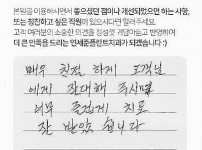 본원을 이용하시면서 좋으셨던 점이나 개선되었으면 하는 사항,
또는 칭찬하고 싶은 직원이 있으시다면 알려주세요.
고객 여러분의 소중한 의견을 정성껏 귀담아듣고 반영하여
더 큰 만족을 드리는 연세준플란트치과가 되겠습니다 :)
매우 친절 하게 고객님
에게 잘대해 주시며
너무 즐겁게 치료
잘 받았습니다